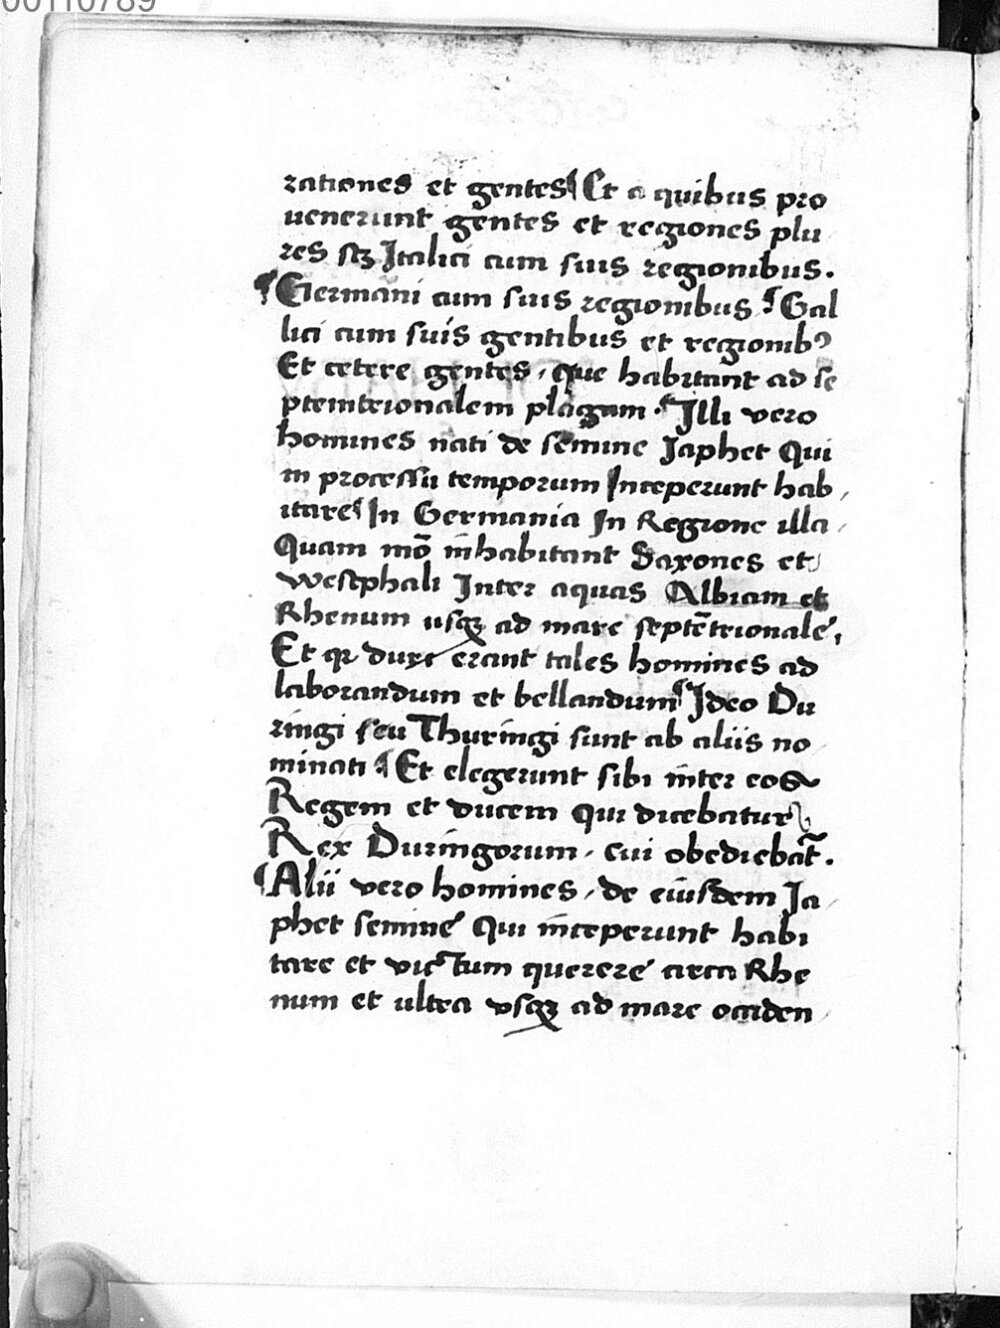 00110789
rationes et gentes ¶ Et a quibus pro
uenerunt gentes et regiones plu
res scꝫ Italici cum suis regionibus.
¶ Germani cum suis regionibus. ¶ Gal
lici cum suis gentibus et regionibꝰ
Et cetere gentes, que habitant ad se
ptemtrionalem plagam. ¶ Illi vero
homines nati de semine Japhet Qui
in processu temporum Inceperunt hab
itare ¶ In Germania In Regione illa
Quam mō inhabitant Saxones et
westphali Inter aquas Albiam et
Rhenum usqꝫ ad mare septētrionale,
Et qꝛ duri erant tales homines ad
laborandum et bellandum ¶ Ideo Du
ringi seu Thuringi sunt ab aliis no
minati ¶ Et elegerunt sibi inter eos
Regem et ducem Qui dicebatur
Rex Duringorum, cui obediebat̄.
¶ Alii vero homines, de eiusdem Ja
phet semine Qui inceperunt habi
tare et victum querere circa Rhe
num et ultra vsqꝫ ad mare occiden